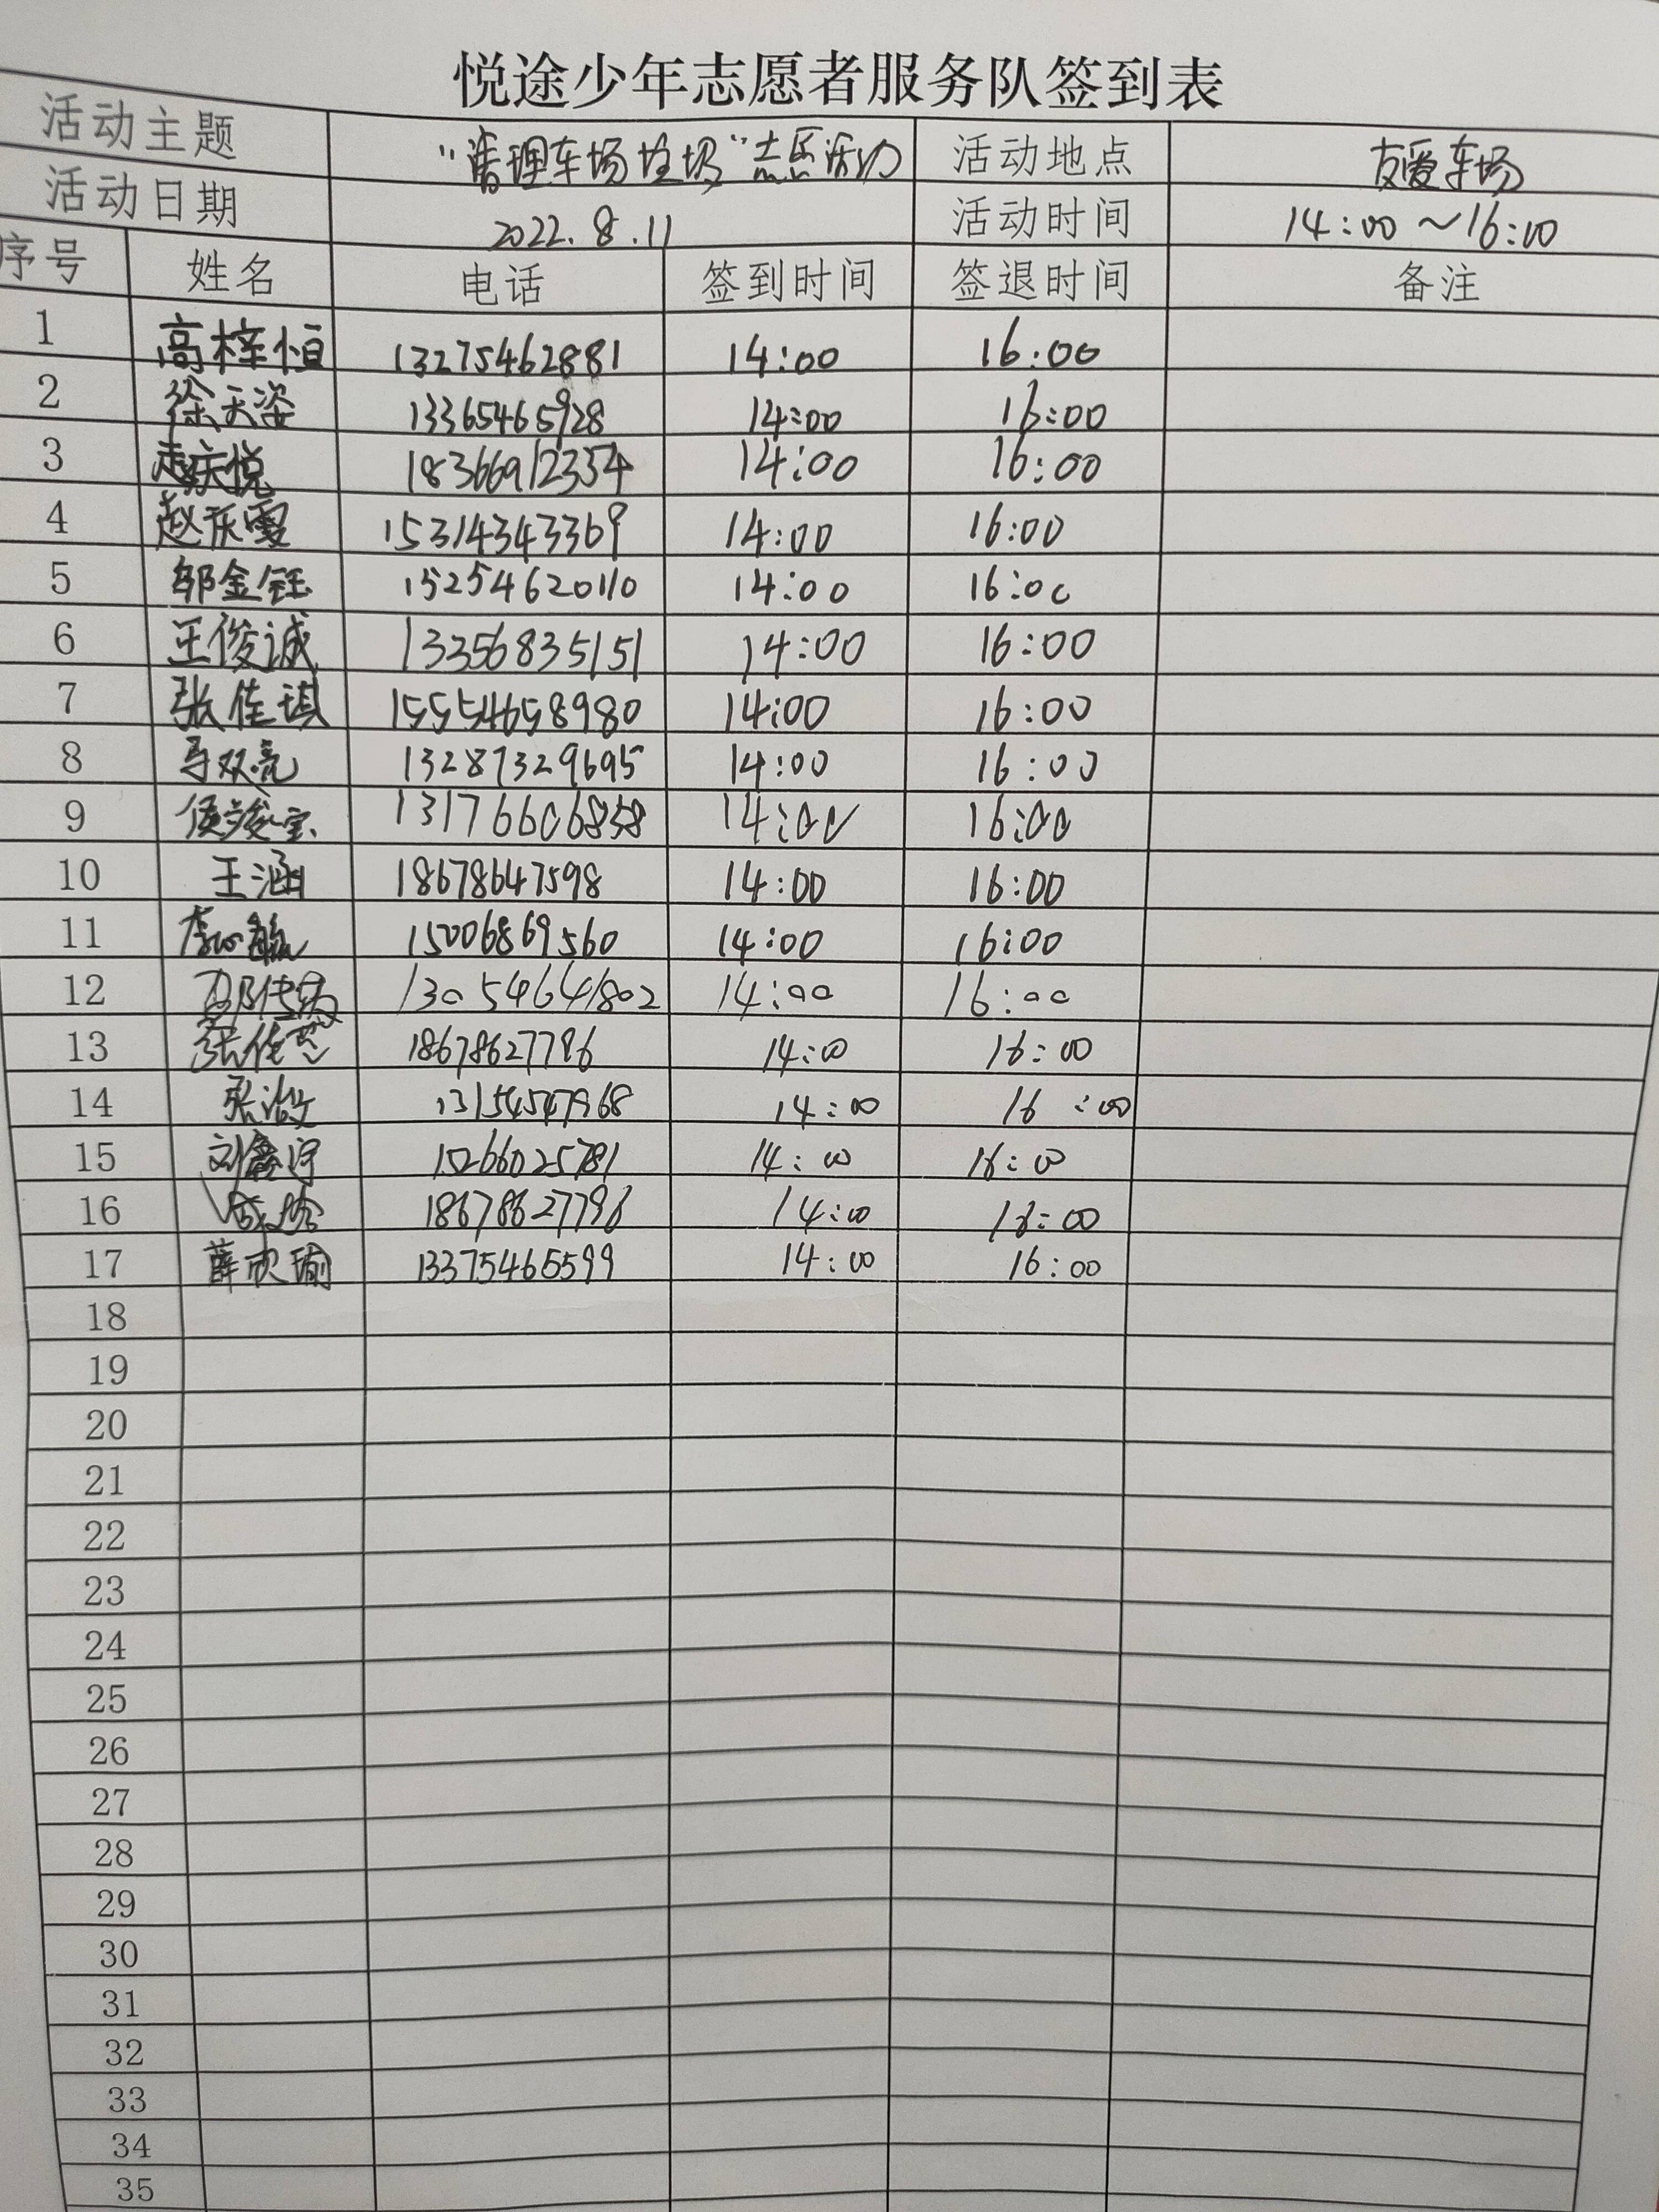 悦途少年志愿者服务队签到表
活动主题 “清理车场垃圾”志愿活动 活动地点 友爱车场
活动日期 2022.8.11 活动时间 14:00~16:00
序号 姓名 电话 签到时间 签退时间 备注
1 高梓恒 13275462881 14:00 16:00
2 徐天姿 13365465928 14:00 16:00
3 赵庆悦 18366912354 14:00 16:00
4 赵庆雯 15314343369 14:00 16:00
5 邹金钰 15254620110 14:00 16:00
6 王俊诚 13356835151 14:00 16:00
7 张佳琪 15554658980 14:00 16:00
8 马双亮 13287329695 14:00 16:00
9 13176606858 14:00 16:00
10 王涵 18678647598 14:00 16:00
11 15006869560 14:00 16:00
12 13054641802 14:00 16:00
13 18678627796 14:00 16:00
14 13154547968 14:00 16:00
15 刘鑫宇 15266025781 14:00 16:00
16 18678627796 14:00 16:00
17 薛欣瑜 13375465599 14:00 16:00
18
19
20
21
22
23
24
25
26
27
28
29
30
31
32
33
34
35